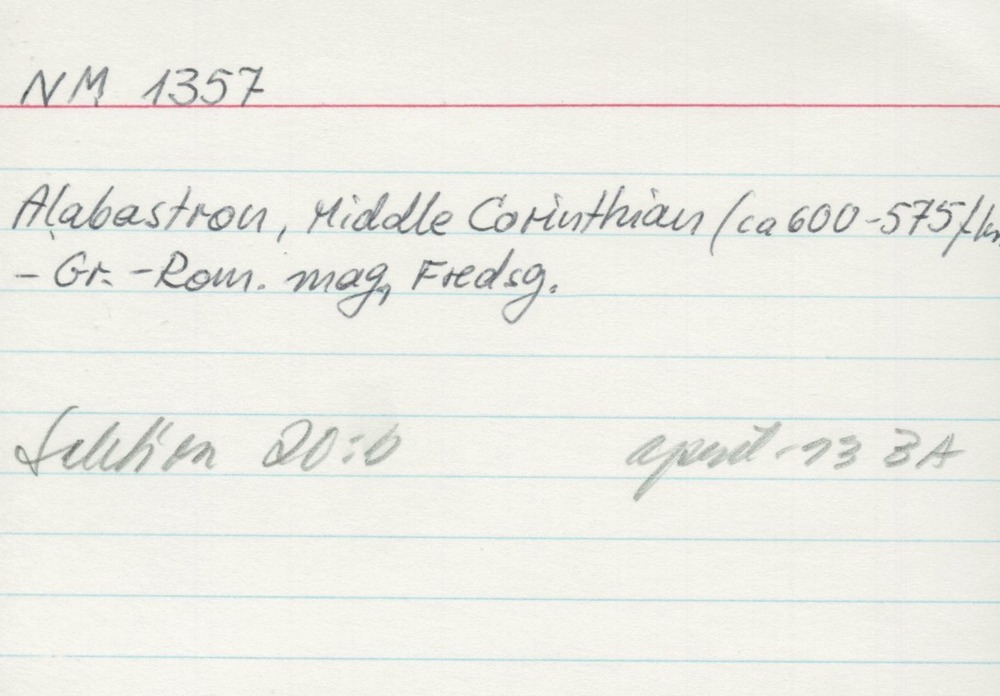 NM 1357
Alabastron, Middle Corinthian (ca 600-575 f kr
- Gr.-Rom. mag, Fredsg.
Sektion 20:b
april -13 3A